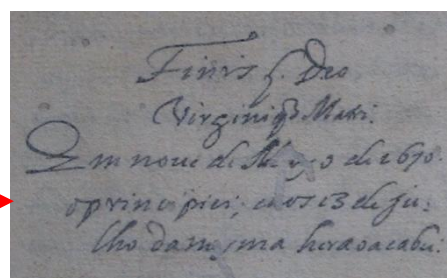 Finis s. Deo
Virginiq3 Matri.
Em nove de de 1670.
o principiei; e aos 13 de ju-
lho da mesma hera o acabei.